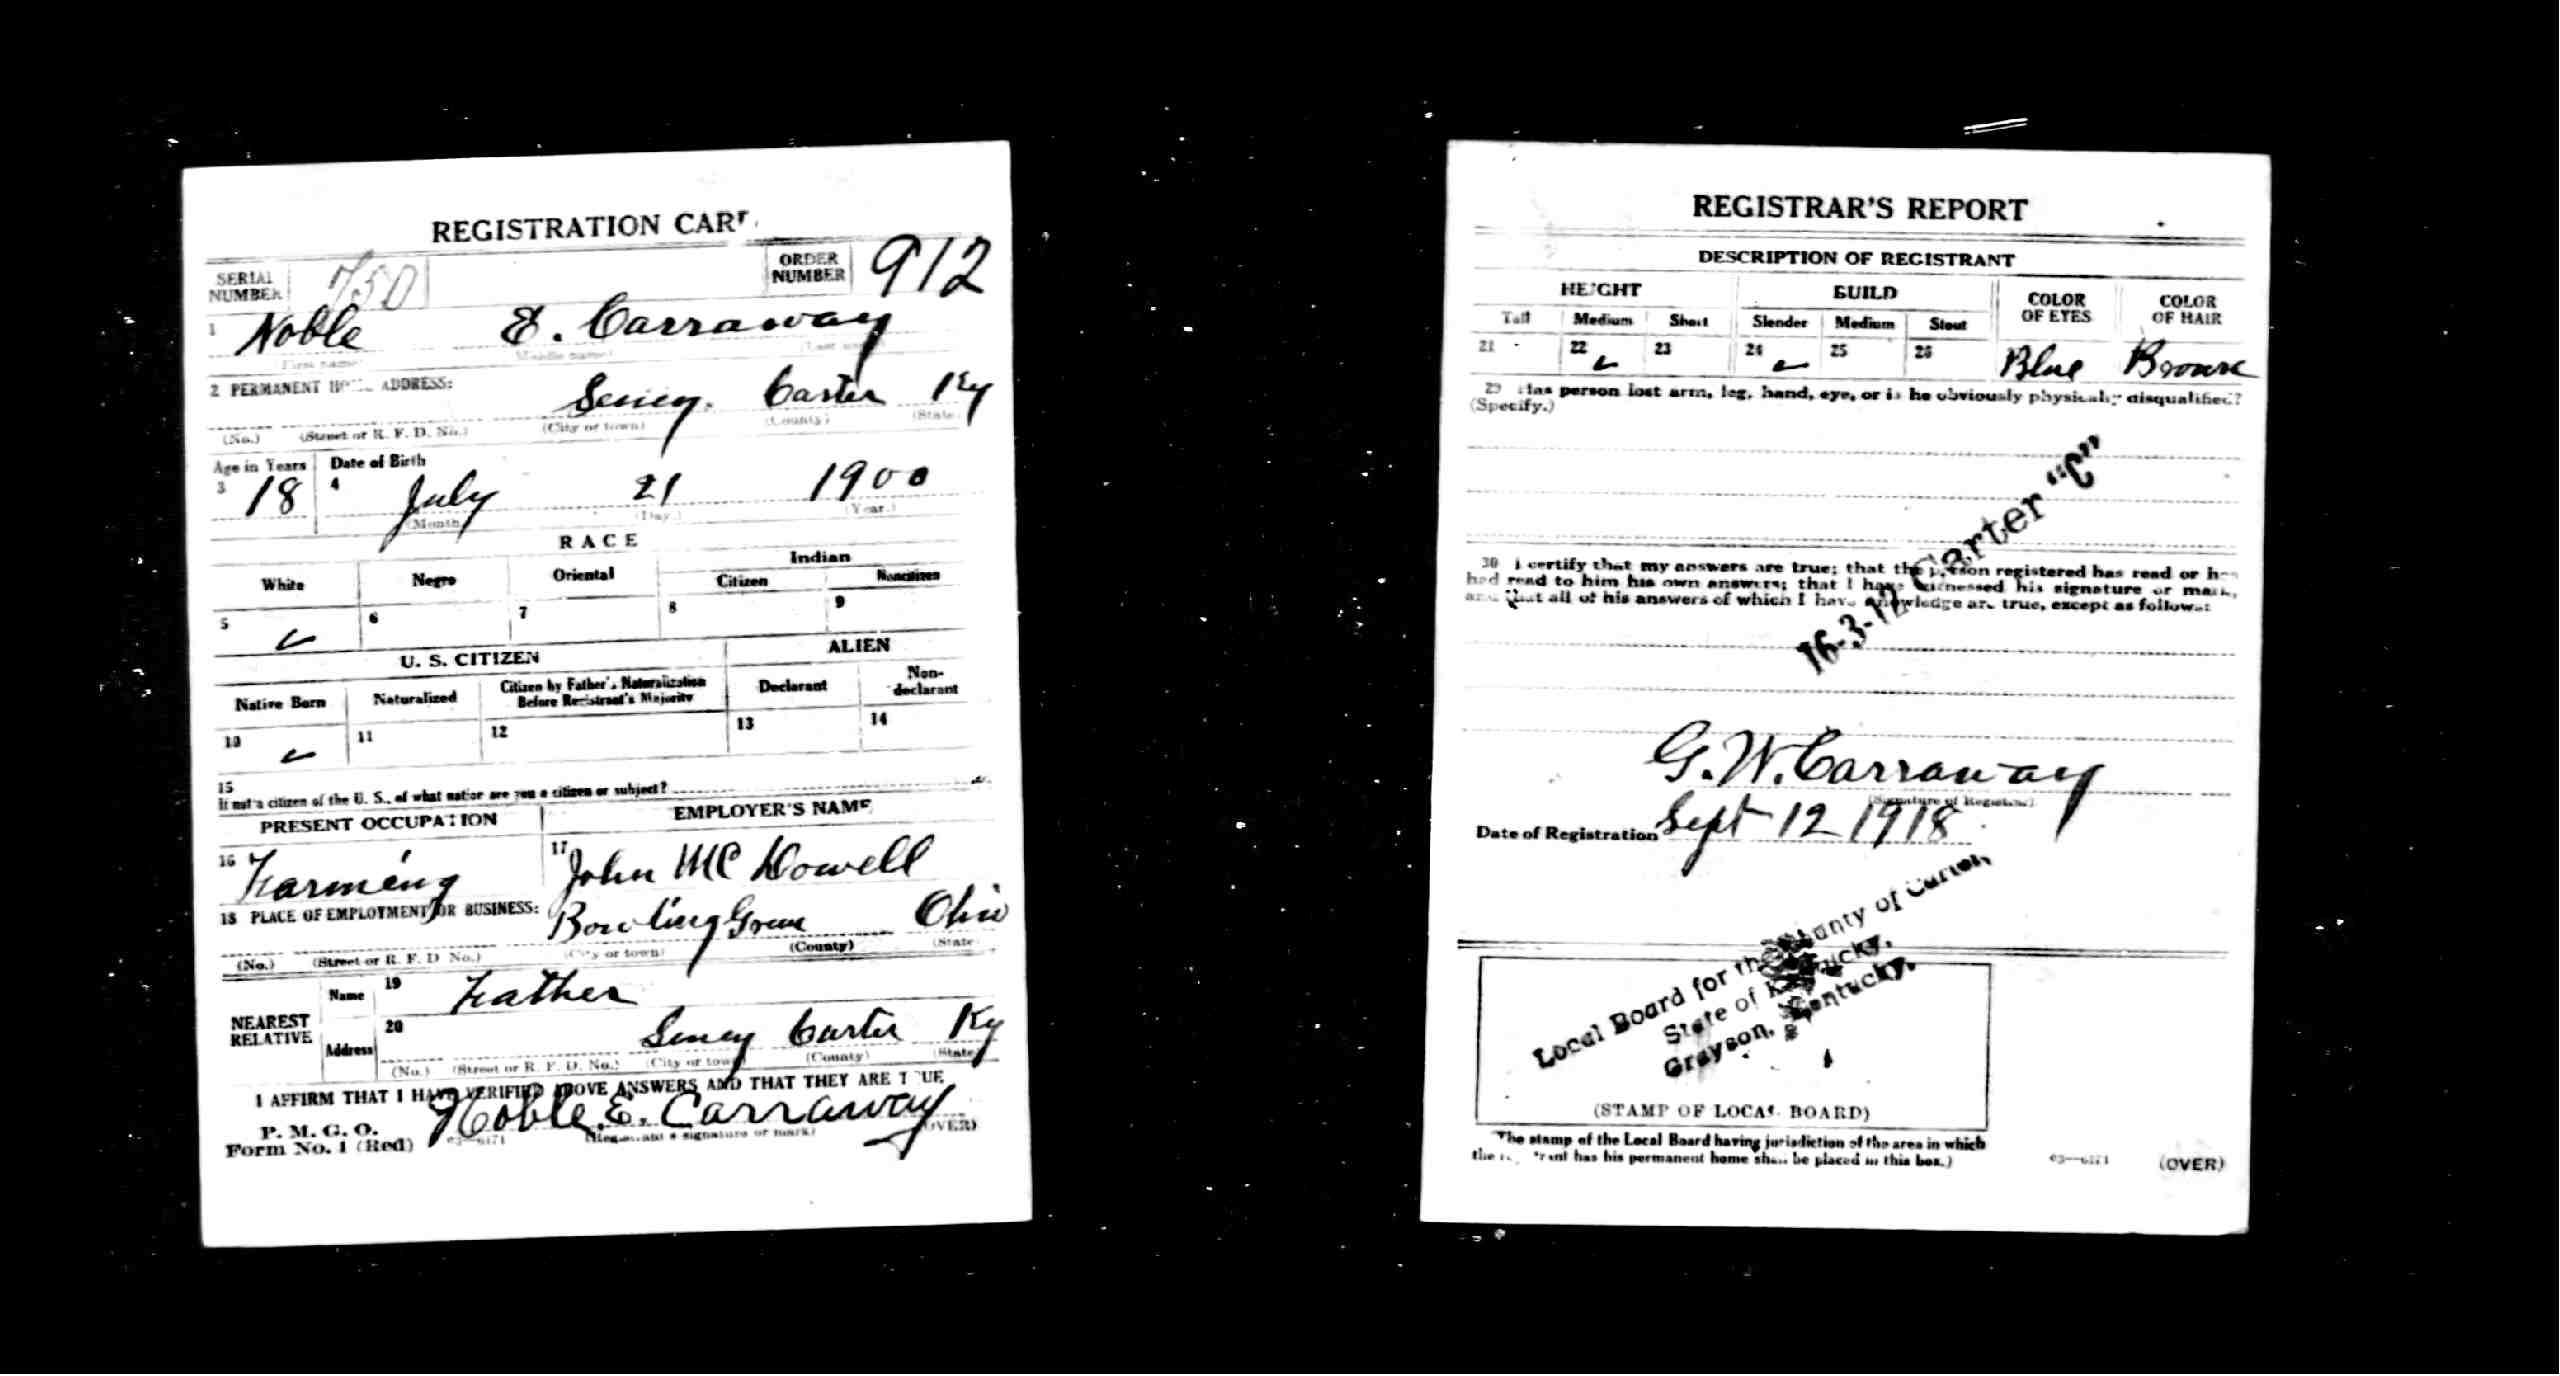 REGISTRATION CARD
SERIAL NUMBER 750 ORDER NUMBER 912
1 Noble E. Carraway
(First name) (Middle name) (Last name)
2 PERMANENT HOME ADDRESS:
Carter Ky
(No.) (Street or R. F. D. No.) (City or town) (County) (State)
Age in Years Date of Birth
3 18 4 July 21 1900
(Month) (Day.) (Year.)
RACE
White Negro Oriental Indian
Citizen Noncitizen
5 ✓ 6 7 8 9
U. S. CITIZEN ALIEN
Native Born Naturalized Citizen by Father's Naturalization Before Registrant's Majority Declarant Non-declarant
10 ✓ 11 12 13 14
15
If not a citizen of the U. S., of what nation are you a citizen or subject?
PRESENT OCCUPATION EMPLOYER'S NAME
16 Farming 17 John Mc Dowell
18 PLACE OF EMPLOYMENT OR BUSINESS:
Bowling Green Ohio
(No.) (Street or R. F. D. No.) (City or town) (County) (State)
NEAREST RELATIVE
Name 19 Father
Address 20 Carter Ky
(No.) (Street or R. F. D. No.) (City or town) (County) (State)
I AFFIRM THAT I HAVE VERIFIED ABOVE ANSWERS AND THAT THEY ARE TRUE
P. M. G. O.
Form No. 1 (Red) 03—6171 Noble. E. Carraway
(Registrant's signature or mark) (OVER)
REGISTRAR'S REPORT
DESCRIPTION OF REGISTRANT
HEIGHT BUILD COLOR OF EYES COLOR OF HAIR
Tall Medium Short Slender Medium Stout
21 22 ✓ 23 24 ✓ 25 26 Blue Brown
29 Has person lost arm, leg, hand, eye, or is he obviously physically disqualified?
(Specify.)
30 I certify that my answers are true; that the person registered has read or has
had read to him his own answers; that I have witnessed his signature or mark,
and that all of his answers of which I have knowledge are true, except as follows:
16-3-12 Carter "C"
G. W. Carraway
(Signature of Registrar)
Date of Registration Sept 12 1918
Local Board for the County of Carter,
State of Kentucky,
Grayson, Kentucky.
(STAMP OF LOCAL BOARD)
(The stamp of the Local Board having jurisdiction of the area in which
the registrant has his permanent home shall be placed in this box.)
03—6171 (OVER)